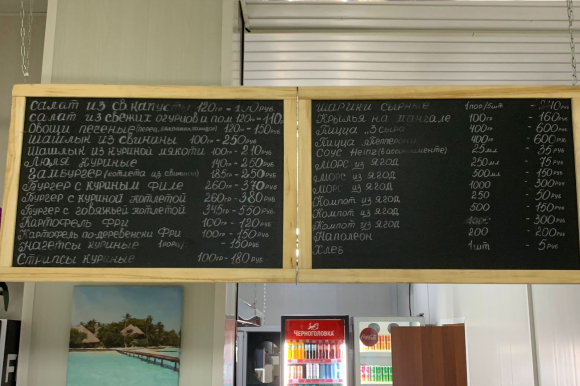 Салат из св капусты 120гр - 100 руб
Салат из свежих огурцов и пом 120гр - 110
Овощи печеные (перец, баклажан, помидор) 120гр - 150руб
Шашлык из свинины 100гр - 250руб
Шашлык из куриной мякоти 100гр - 210руб
Люля куриные 140гр - 250руб
Гамбургер (котлета из свинины) 185гр - 250руб
Бургер с куриным филе 260гр - 370руб
Бургер с куриной котлетой 260гр - 380руб
Бургер с говяжьей котлетой 345гр - 550руб
Картофель Фри 100гр - 120руб
Картофель по-деревенски Фри 100гр - 150руб
Нагетсы куриные 1порц - 150руб
Стрипсы куриные 100гр - 180руб
Шарики сырные 1пор/5шт - руб
Крылья на мангале 100гр - 160руб
Пицца 3 сыра 400гр - 600руб
Пицца Пепперони 400гр - 600руб
Соус Heinz (в ассортименте) 25мл - 55руб
Морс из ягод 250мл - 75руб
Морс из ягод 500мл - 150руб
Морс из ягод 1000 - 300руб
Компот из ягод 250 - 50руб
Компот из ягод 500 - 150руб
Компот из ягод 1000 - 300руб
Наполеон 200 - 200руб
Хлеб 1шт - 5руб
Черноголовка